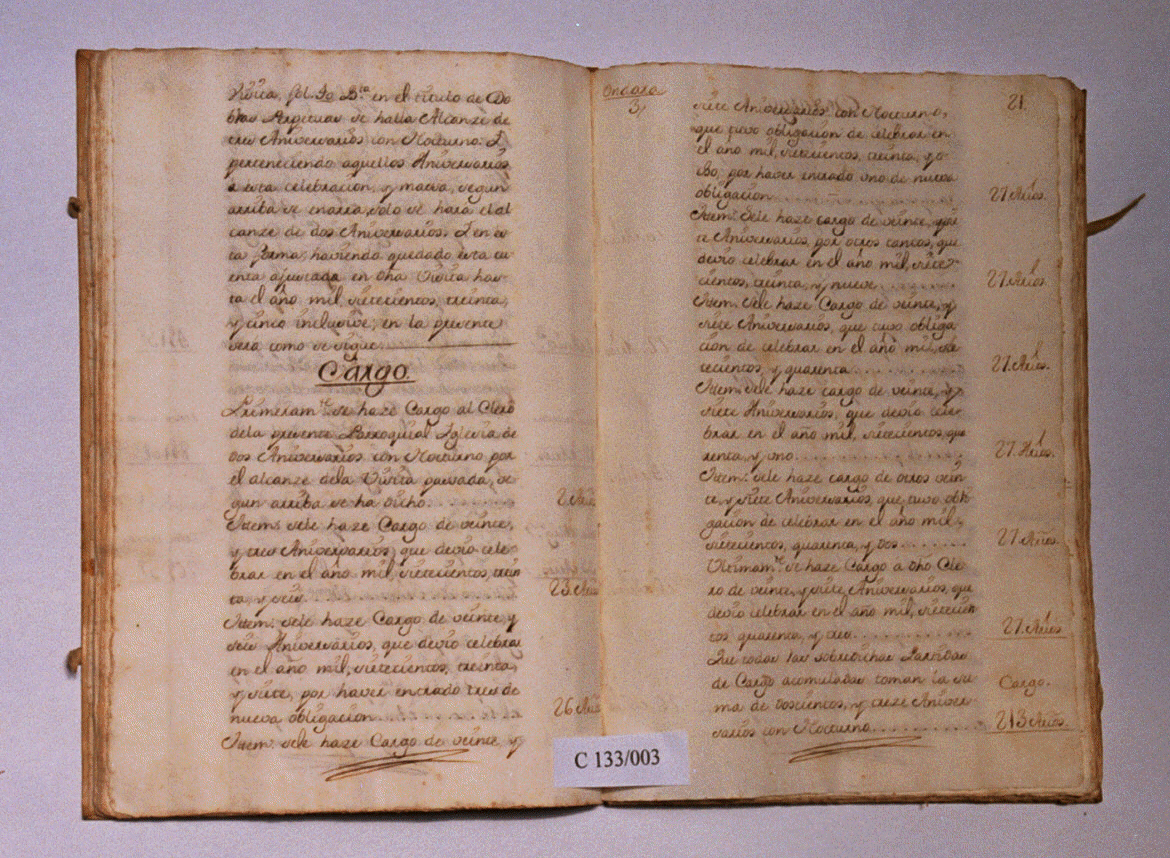 Visita, fol. 30 B.ta en el titulo de Do
blas Perpetuas se halla Alcanze de
tres Aniversarios con Nocturno. I
perteneciendo aquellos Aniversarios
a esta celebracion, y massa, segun
arriba se enarra, solo se hará el al
canze de dos Aniversarios. I en es
ta forma, haviendo quedado esta cu
enta ajustada en dha Visita has
ta el año mil, setecientos, treinta,
y cinco inclusive, en la presente
será como se sigue
Cargo.
Primeram.te se haze Cargo al Clero
dela presente Parroquial Iglesia de
dos Aniversarios con Nocturno por
el alcanze dela Visita passada, se
gun arriba se ha dicho.
Itemː sele haze Cargo de veinte,
y tres Aniversarios, que devio cele
brar en el año mil, setecientos, trein
ta, y seis.
23 A
Itemː sele haze Cargo de veinte, y
seis Aniversarios, que devio celebrar
en el año mil, setecientos, treinta,
y siete, por haver entrado tres de
nueva obligacion
26 A
Itemː sele haze Cargo de veinte, y
C 133/003
Ondara
3,
21
siete Aniversarios con Nocturno,
que tuvo obligacion de celebrar en
el año mil, setecientos, treinta, y o-
cho, por haver entrado uno de nueva
obligacion
27 Años.
Itemː sele haze cargo de veinte, y sie
te Aniversarios, por otros tantos, que
devio celebrar en el año mil, sete
cientos, treinta, y nueve
27 Años.
Itemː sele haze Cargo de veinte, y
siete Aniversarios, que tuvo obliga
cion de celebrar en el año mil, se
tecientos, y quarenta
27 Años.
Itemː sele haze cargo de veinte, y
siete Aniversarios, que devio cele
brar en el año mil, setecientos, qua
renta, y uno
27 Años.
Itemː sele haze cargo de otros vein
te, y siete Aniversarios, que tuvo obli
gacion de celebrar en el año mil,
setecientos, quarenta, y dos
27 Años.
Ultimam.te se haze Cargo a dho Cle
ro de veinte, y siete Aniversarios, que
devio celebrar en el año mil, setecien
tos quarenta, y tres
27 Años
Que todas las sobredichas Partidas
de Cargo acumuladas toman la su
Cargo.
ma de doscientos, y treze Aniver
sarios con Nocturno
213 Años.